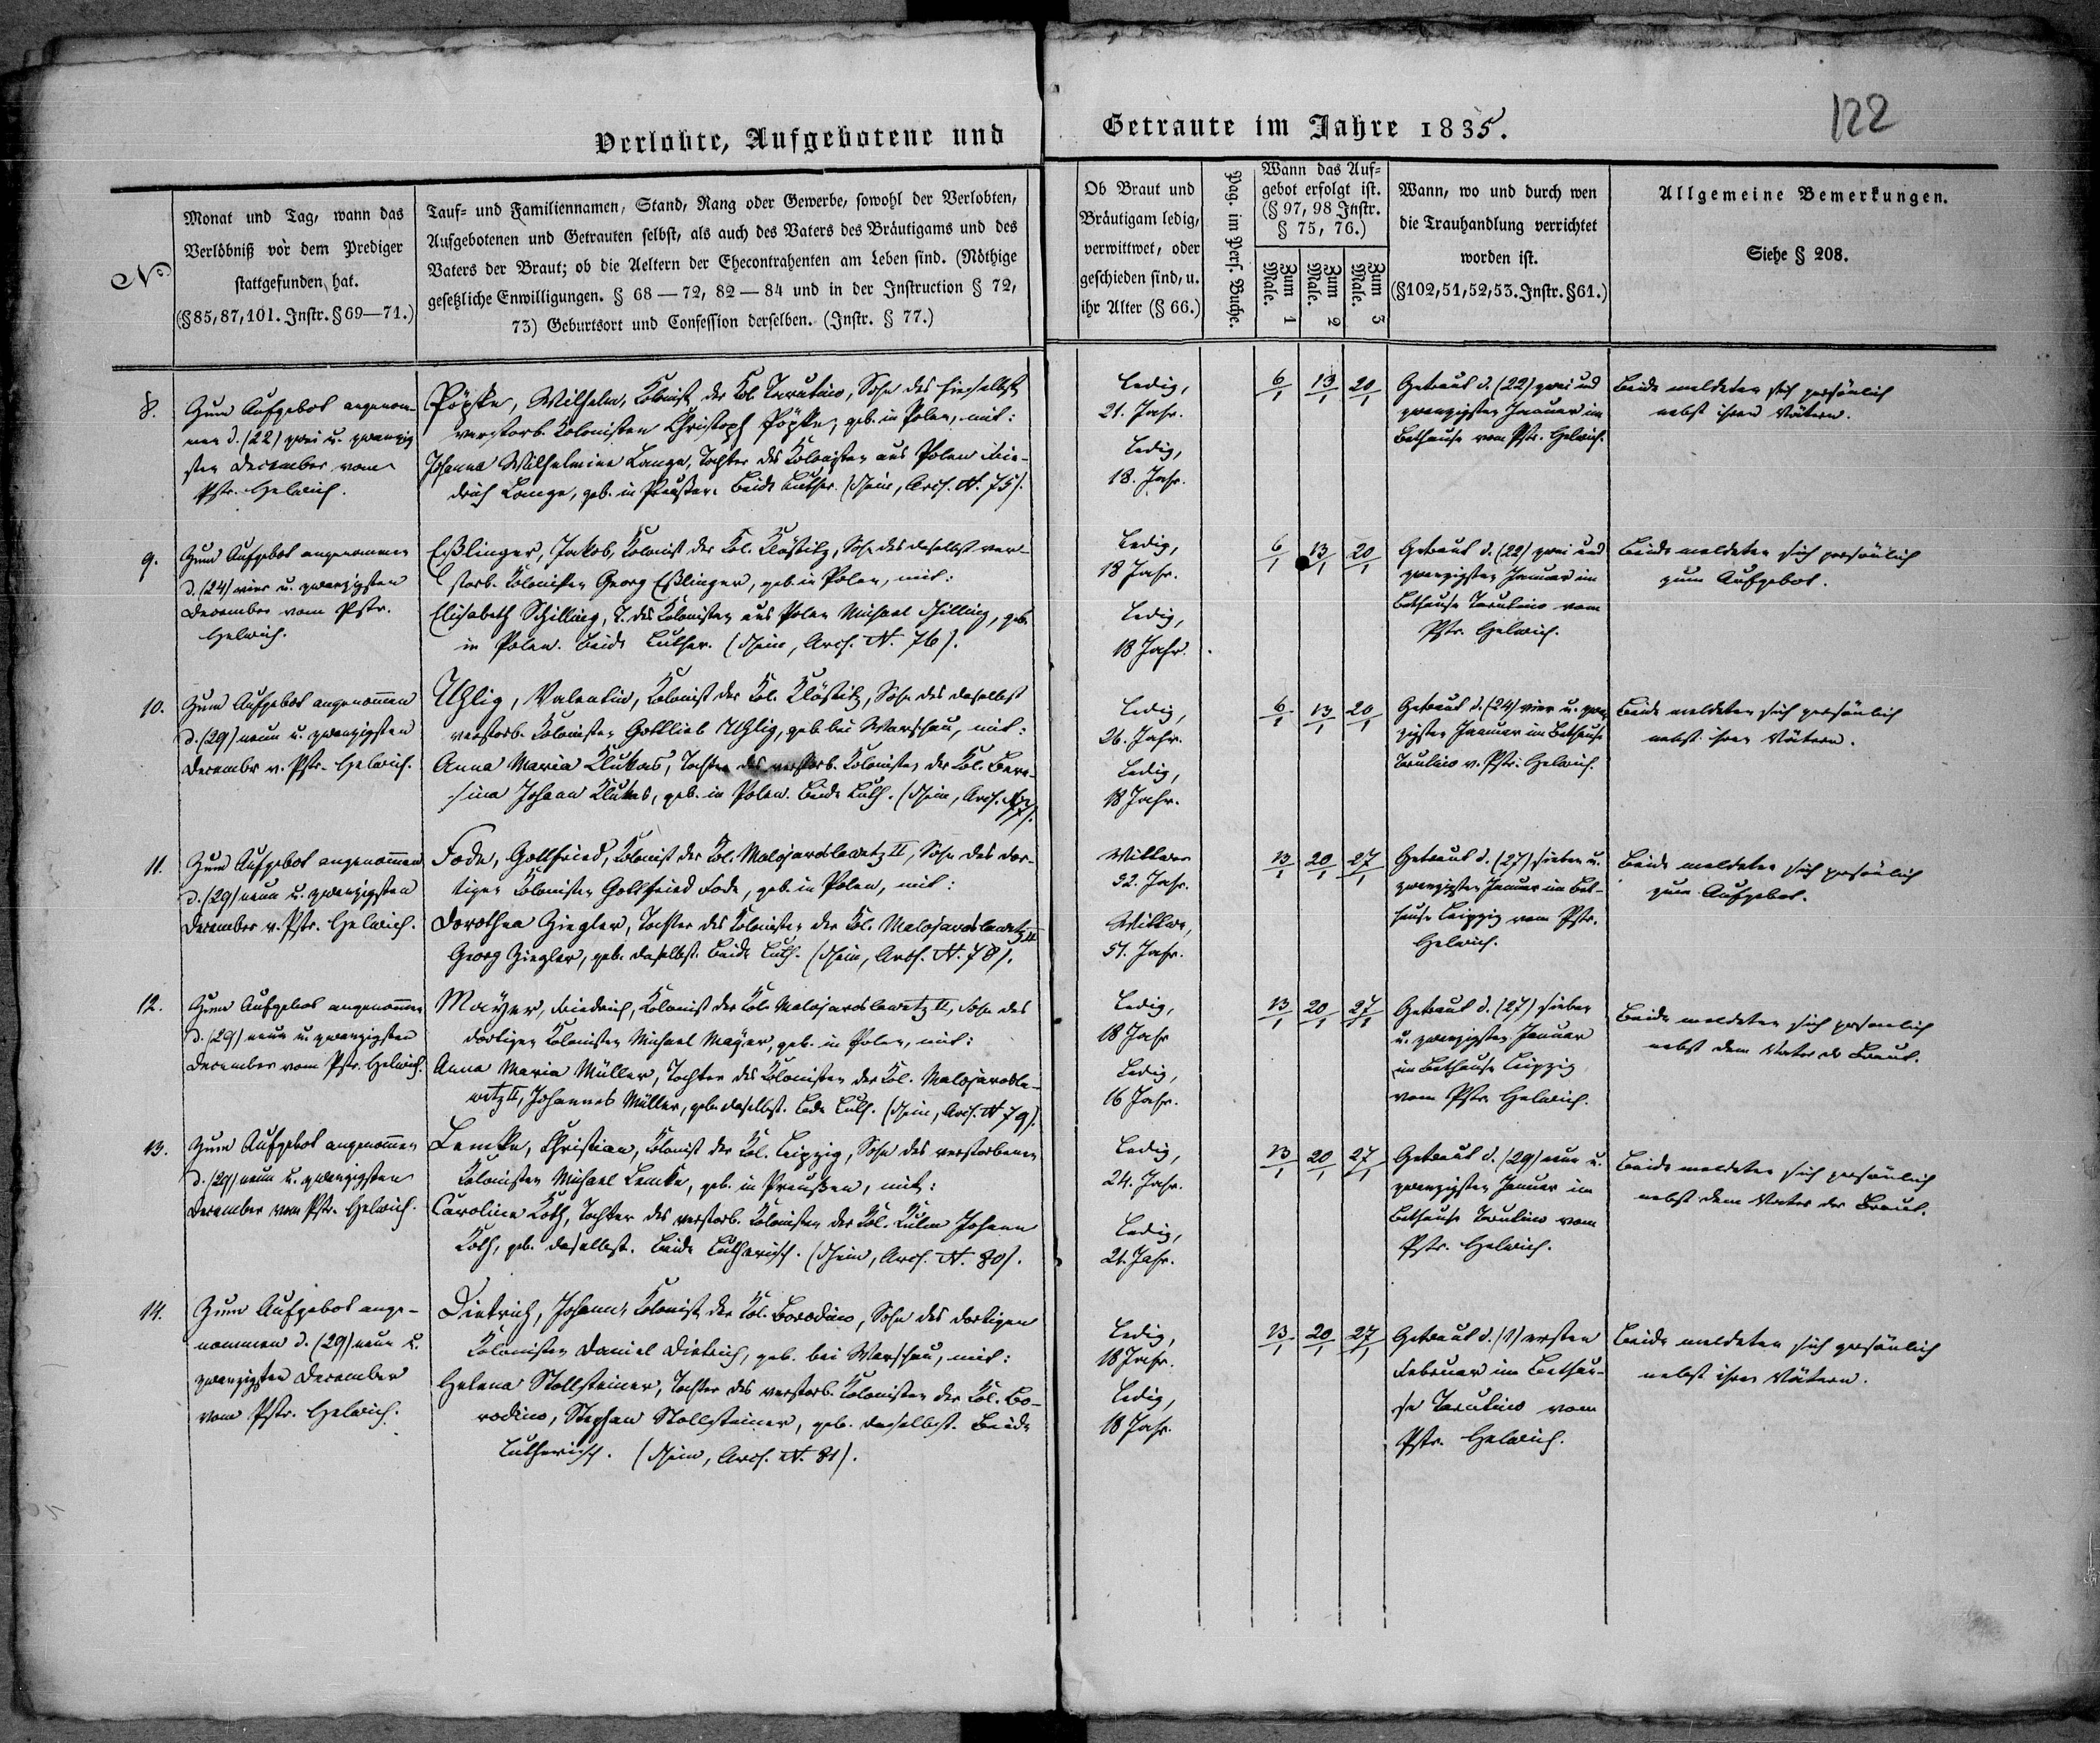 122
Verlobte, Aufgebotene und Getraute im Jahre 1835.
No
Monat und Tag, wann das
Verlöbniß vor dem Prediger
stattgefunden hat.
(§85, 87, 101. Instr. §69—71.)
Tauf- und Familiennamen, Stand, Rang oder Gewerbe, sowohl der Verlobten,
Aufgebotenen und Getrauten selbst, als auch des Vaters des Bräutigams und des
Vaters der Braut; ob die Aeltern der Ehecontrahenten am Leben sind. (Nöthige
gesetzliche Enwilligungen. § 68—72, 82—84 und in der Instruction § 72,
73) Geburtsort und Confession derselben. (Instr. § 77.)
Ob Braut und
Bräutigam ledig,
verwittwet, oder
geschieden sind, u.
ihr Alter (§ 66.)
Pag. im Pers. Buche.
Wann das Auf-
gebot erfolgt ist.
(§ 97, 98 Instr.
§ 75, 76.)
Zum 1 Male.
Zum 2 Male.
Zum 3 Male.
Wann, wo und durch wen
die Trauhandlung verrichtet
worden ist.
(§102, 51, 52, 53. Instr. §61.)
Allgemeine Bemerkungen.
Siehe § 208.
8.
Zum Aufgebot angenom-
men d. (22) zwei u. zwanzig
sten December vom
Pstr. Helwich.
Pöpke, Wilhelm, Kolonist der Kol. Tarutino, Sohn des hieselbst
verstorb. Kolonisten Christoph Pöpke, geb. in Polen, mit:
Johanna Wilhelmine Lange, Tochter des Kolonisten aus Polen Frie-
drich Lange, geb. in Preußen. Beide Luther. (Schein, Arch. N. 75).
Ledig,
21. Jahr.
Ledig,
18. Jahr.
6/1 13/1 20/1
Getraut d. (22) zwei und
zwanzigsten Januar im
Bethause vom Pstr. Helwich.
Beide meldeten sich persönlich
nebst ihren Vätern.
9.
Zum Aufgebot angenommen
d. (24) vier u. zwanzigsten
December vom Pstr.
Helwich.
Eßlinger, Jakob, Kolonist der Kol. Klöstitz, Sohn des daselbst ver-
storb. Kolonisten Georg Eßlinger, geb. in Polen, mit:
Elisabeth Schilling, T. des Kolonisten aus Polen Michael Schilling, geb.
in Polen. Beide Luther. (Schein, Arch. N. 76).
Ledig,
18 Jahr.
Ledig,
18 Jahr.
6/1 13/1 20/1
Getraut d. (22) zwei und
zwanzigsten Januar im
Bethause Tarutino vom
Pstr. Helwich.
Beide meldeten sich persönlich
zum Aufgebot.
10.
Zum Aufgebot angenommen
d. (29) neun u. zwanzigsten
Decembr v. Pstr. Helwich.
Uhlig, Valentin, Kolonist der Kol. Klöstitz, Sohn des daselbst
verstorb. Kolonisten Gottlieb Uhlig, geb. bei Warschau, mit:
Anna Maria Klukas, Tochter des verstorb. Kolonisten der Kol. Bere-
sina Johann Klukas, geb. in Polen. Beide Luth. (Schein, Arch. N. 77).
Ledig,
26. Jahr.
Ledig,
18 Jahr.
6/1 13/1 20/1
Getraut d. (24) vier u. zwan
zigsten Januar im Bethause
Tarutino v. Pstr. Helwich.
Beide meldeten sich persönlich
nebst ihren Vätern.
11.
Zum Aufgebot angenommen
d. (29) neun u. zwanzigsten
December v. Pstr. Helwich.
Fode, Gottfried, Kolonist der Kol. Malojaroslawetz II, Sohn des dor-
tigen Kolonisten Gottfried Fode, geb. in Polen, mit:
Dorothea Ziegler, Tochter des Kolonisten der Kol. Malojaroslawetz II
Georg Ziegler, geb. daselbst. Beide Luth. (Schein, Arch. N. 78).
Wittwer
32. Jahr.
Wittwe,
51. Jahr.
13/1 20/1 27/1
Getraut d. (27) sieben u.
zwanzigsten Januar im Bet-
hause Leipzig vom Pstr.
Helwich.
Beide meldeten sich persönlich
zum Aufgebot.
12.
Zum Aufgebot angenommen
d. (29) neun u. zwanzigsten
December vom Pstr. Helwich.
Mayer, Friedrich, Kolonist der Kol. Malojaroslawetz II, Sohn des
dortigen Kolonisten Michael Mayer, geb. in Polen, mit:
Anna Maria Müller, Tochter des Kolonisten der Kol. Malojarosla-
wetz II, Johannes Müller, geb. daselbst. Beide Luth. (Schein, Arch. N 79).
Ledig,
18 Jahr
Ledig,
16 Jahr.
13/1 20/1 27/1
Getraut d. (27) sieben
u. zwanzigsten Januar
im Bethause Leipzig
vom Pstr. Helwich.
Beide meldeten sich persönlich
nebst dem Vater der Braut.
13.
Zum Aufgebot angenommen
d. (29) neun u. zwanzigsten
December vom Pstr. Helwich.
Lemke, Christian, Kolonist der Kol. Leipzig, Sohn des verstorbenen
Kolonisten Michael Lemke, geb. in Preußen, mit:
Caroline Koth, Tochter des verstorb. Kolonisten der Kol. Kulm Johann
Koth, geb. daselbst. Beide Lutherisch. (Schein, Arch. N. 80).
Ledig,
24. Jahr.
Ledig,
21. Jahr.
13/1 20/1 27/1
Getraut d. (29) neun u.
zwanzigsten Januar im
Bethause Tarutino vom
Pstr. Helwich.
Beide meldeten sich persönlich
nebst dem Vater der Braut.
14.
Zum Aufgebot ange-
nommen d. (29) neun u.
zwanzigsten December
vom Pstr. Helwich.
Dietrich, Johann, Kolonist der Kol. Borodino, Sohn des dortigen
Kolonisten Daniel Dietrich, geb. bei Warschau, mit:
Helena Stollsteiner, Tochter des verstorb. Kolonisten der Kol. Bo-
rodino, Stephan Stollsteiner, geb. daselbst. Beide
Lutherisch. (Schein, Arch. N. 81).
Ledig,
18 Jahr.
Ledig,
18 Jahr.
13/1 20/1 27/1
Getraut d. (1) ersten
Februar im Bethau-
se Tarutino vom
Pstr. Helwich.
Beide meldeten sich persönlich
nebst ihren Vätern.